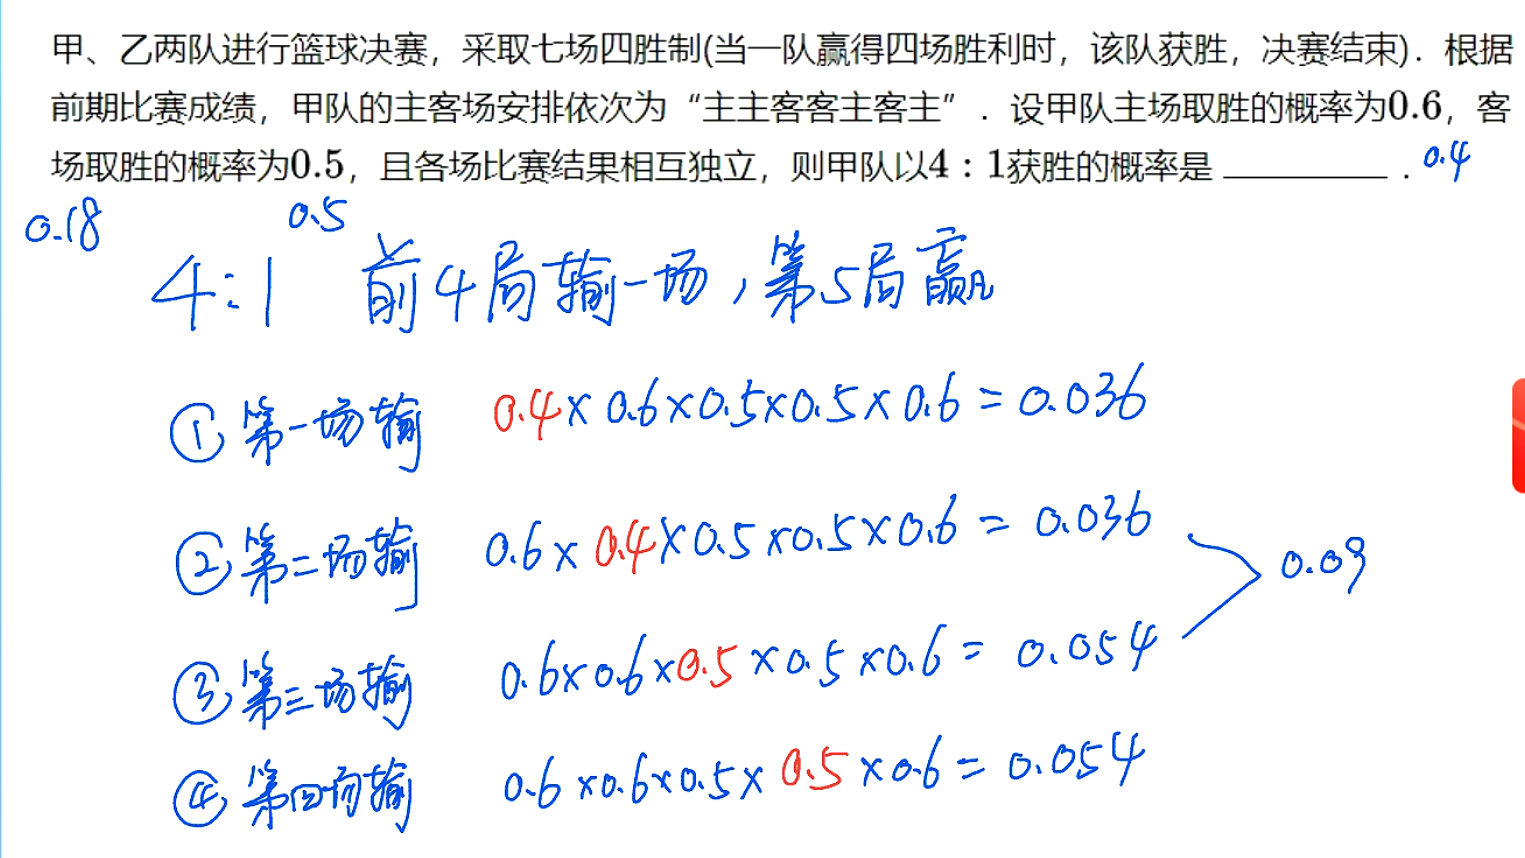 甲、乙两队进行篮球决赛，采取七场四胜制(当一队赢得四场胜利时，该队获胜，决赛结束)．根据
前期比赛成绩，甲队的主客场安排依次为“主主客客主客主”．设甲队主场取胜的概率为0.6，客
场取胜的概率为0.5，且各场比赛结果相互独立，则甲队以4：1获胜的概率是 ________ ．
0.4
0.18
0.5
4:1 前4局输一场，第5局赢
① 第一场输 0.4×0.6×0.5×0.5×0.6=0.036
② 第二场输 0.6×0.4×0.5×0.5×0.6=0.036
0.09
③ 第三场输 0.6×0.6×0.5×0.5×0.6=0.054
④ 第四场输 0.6×0.6×0.5×0.5×0.6=0.054